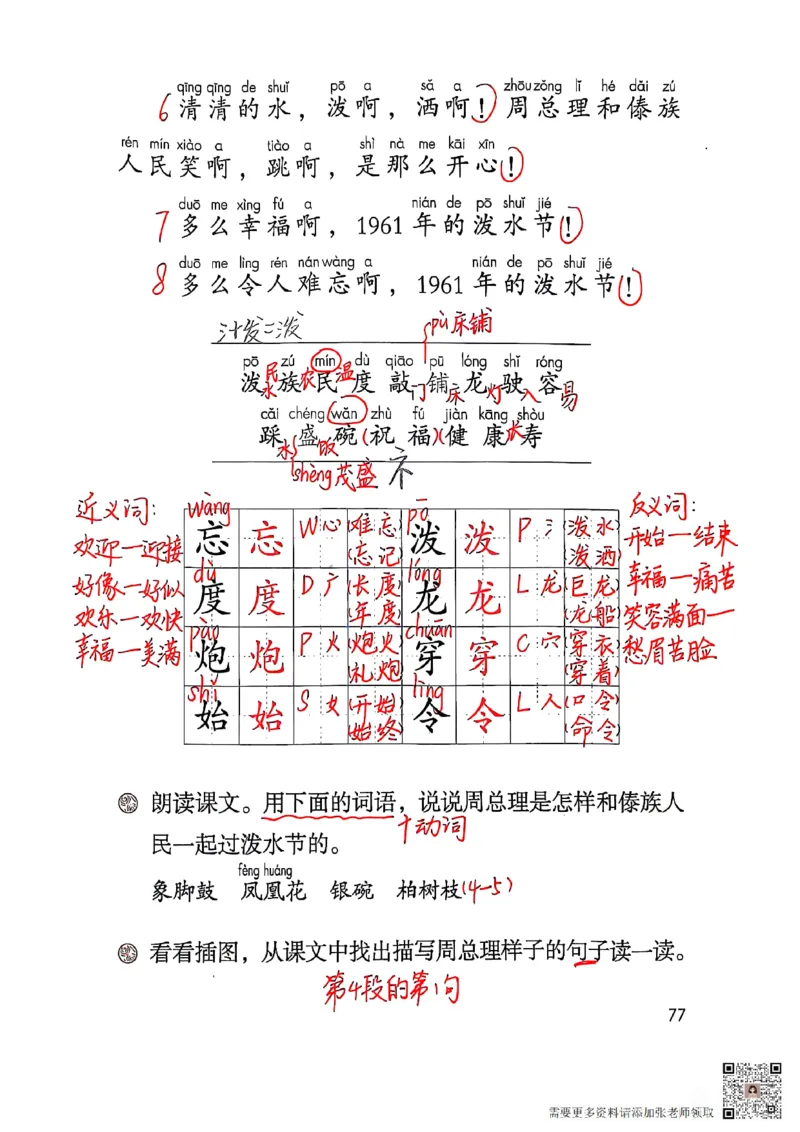 qīng qīng de shuǐ pō a sǎ a zhōu zǒng lǐ hé dǎi zú
6 清清的水，泼啊，洒啊！周总理和傣族
rén mín xiào a tiào a shì nà me kāi xīn
人民笑啊，跳啊，是那么开心！
duō me xìng fú a nián de pō shuǐ jié
7 多么幸福啊，1961年的泼水节！
duō me lìng rén nán wàng a nián de pō shuǐ jié
8 多么令人难忘啊，1961年的泼水节！
氵发=泼
pù床铺
pō zú mín dù qiāo pū lóng shǐ róng
泼族民度敲铺龙驶容
水 民 农 温 门 床 灯 入 易
cǎi chéng wǎn zhù fú jiàn kāng shòu
踩盛碗(祝福)(健康寿
水 饭 长
shèng茂盛 礻
近义词：
欢迎—迎接
好像—好似
欢乐—欢快
幸福—美满
wàng pō
忘 忘 W 心 (难忘)(忘记) 泼 泼 P 氵 (泼水)(泼洒)
dù lóng
度 度 D 广 (长度)(年度) 龙 龙 L 龙 (巨龙)(龙船)
pào chuān
炮 炮 P 火 (炮火)(礼炮) 穿 穿 C 穴 (穿衣)(穿着)
shǐ lìng
始 始 S 女 (开始)(始终) 令 令 L 人 (口令)(命令)
反义词：
开始—结束
幸福—痛苦
笑容满面—
愁眉苦脸
朗读课文。用下面的词语，说说周总理是怎样和傣族人
十动词
民一起过泼水节的。
fèng huáng
象脚鼓 凤凰花 银碗 柏树枝(4—5)
看看插图，从课文中找出描写周总理样子的句子读一读。
第4段的第1句
77
需要更多资料请添加张老师领取